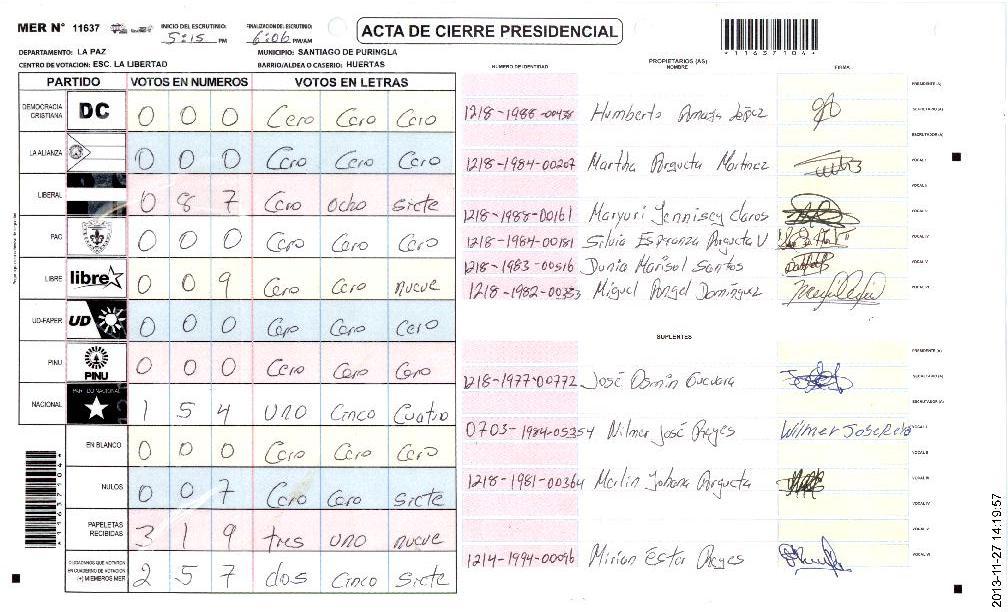 MER N° 11637
INICIO DEL ESCRUTINIO: 5:15 PM
FINALIZACION DEL ESCRUTINIO: 6:06 PM/AM
ACTA DE CIERRE PRESIDENCIAL
*11637104*
DEPARTAMENTO: LA PAZ
MUNICIPIO: SANTIAGO DE PURINGLA
CENTRO DE VOTACION: ESC. LA LIBERTAD
BARRIO/ALDEA O CASERIO: HUERTAS
PARTIDO VOTOS EN NUMEROS VOTOS EN LETRAS
DEMOCRACIA CRISTIANA DC 0 0 0 Cero Cero Cero
LA ALIANZA 0 0 0 Cero Cero Cero
LIBERAL 0 8 7 Cero ocho siete
PAC 0 0 0 Cero Cero Cero
LIBRE libre 0 0 9 Cero Cero nueve
UD-FAPER UD 0 0 0 Cero Cero Cero
PINU PINU 0 0 0 Cero Cero Cero
NACIONAL PARTIDO NACIONAL 1 5 4 uno Cinco Cuatro
EN BLANCO 0 0 0 Cero Cero Cero
NULOS 0 0 7 Cero Cero siete
PAPELETAS RECIBIDAS 3 1 9 tres uno nueve
CIUDADANOS QUE VOTARON EN CUADERNO DE VOTACION (+) MIEMBROS MER 2 5 7 dos Cinco Siete
*11637104*
NUMERO DE IDENTIDAD
PROPIETARIOS (AS)
NOMBRE
FIRMA
PRESIDENTE (A)
1218-1988-00438 Humberto López SECRETARIO (A)
ESCRUTADOR (A)
1218-1984-00207 Martha Argueta Martinez VOCAL I
VOCAL II
1218-1988-00161 Maryuri Jennissey Claros VOCAL III
1218-1984-00181 Silvia Esperanza Argueta V VOCAL IV
1218-1983-00516 Dunia Marisol Santos VOCAL V
1218-1982-00333 Miguel Angel Domínguez VOCAL VI
SUPLENTES
PRESIDENTE (A)
1218-1977-00772 José Domin Guevara SECRETARIO (A)
ESCRUTADOR (A)
0703-1984-05354 Wilmer José Reyes Wilmer Jose VOCAL I
VOCAL II
1218-1981-00364 Merlin Johana Argueta VOCAL III
VOCAL IV
VOCAL V
1214-1994-00096 Mirian Ester Reyes VOCAL VI
2013-11-27 14:19:57